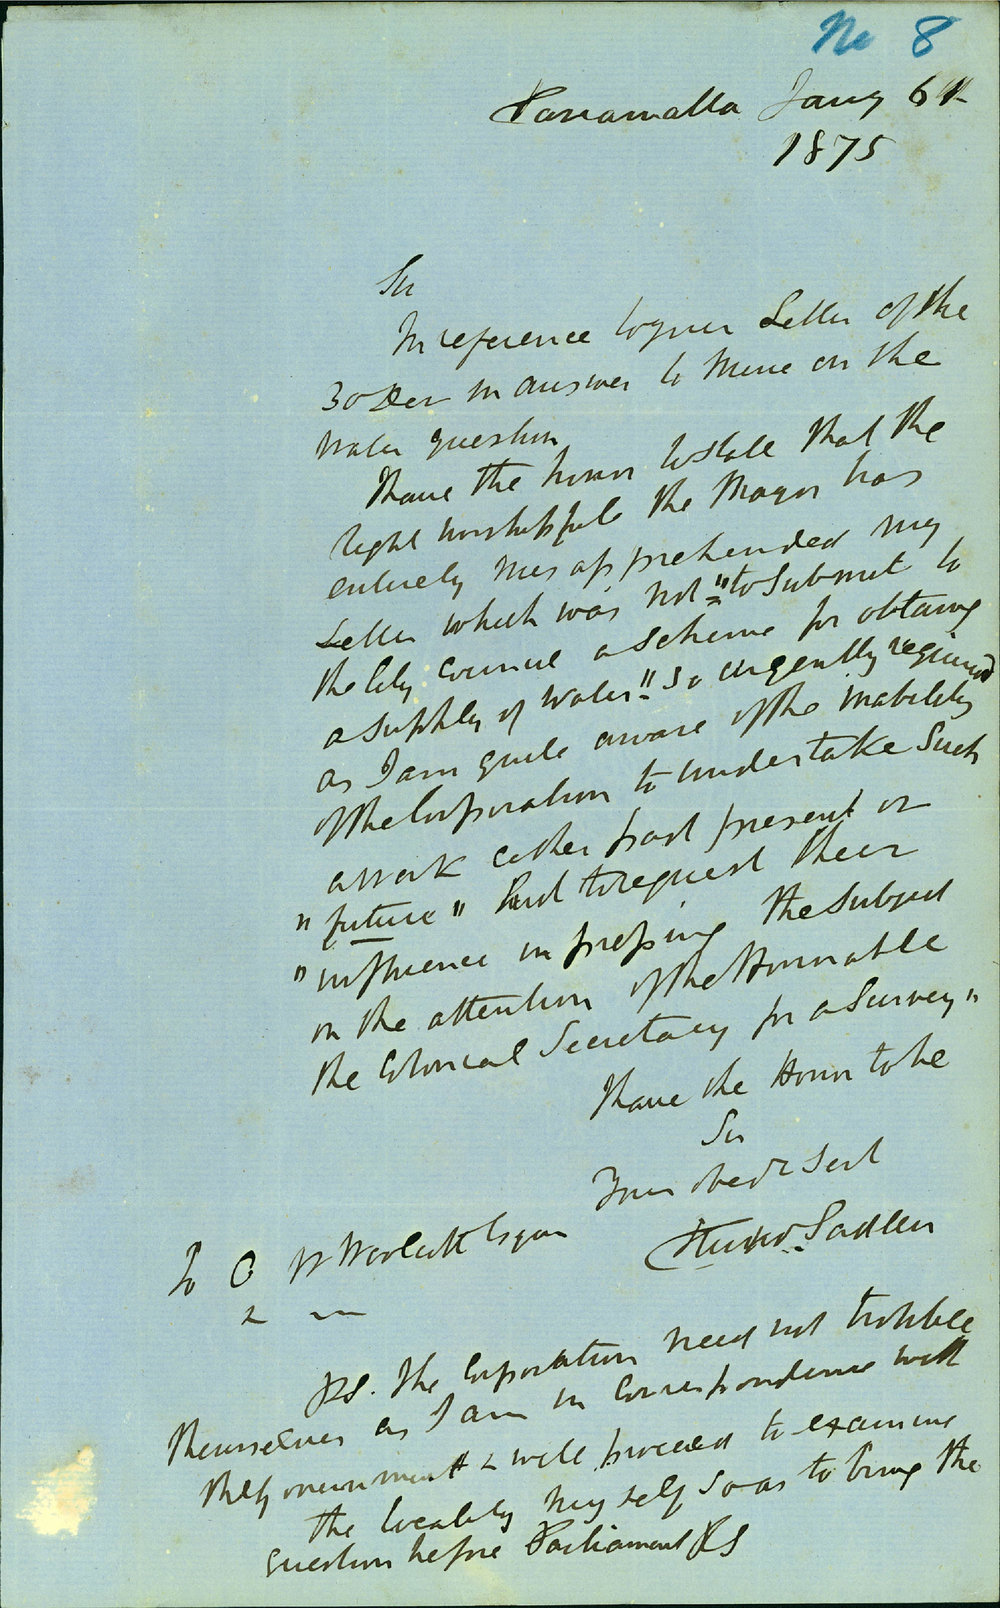 No 8
Parramatta Jany 6th
1875
Sir
In reference to your Letter of the
30 Decr in answer to Mine on the
Water question
I have the honor to state that the
right worshipful the Mayor has
entirely misapprehended my
Letter which was not "to Submit to
the City Council a scheme for obtaing
a supply of Water" so urgently required
as I am quite aware of the inability
of the Corporation to undertake Such
a work either past present or
"future" but to request their
"influence in pressing the Subject
on the attention of the Honorable
the Colonial Secretary for a Survey"
I have the Honor to be
Sir
Your obedt Sert
Sadler
To C H Woolcott Esquire
PS. The Corporation need not trouble
themselves as I am in Correspondence with
the Government & will proceed to examine
the locality myself so as to bring the
question before Parliament